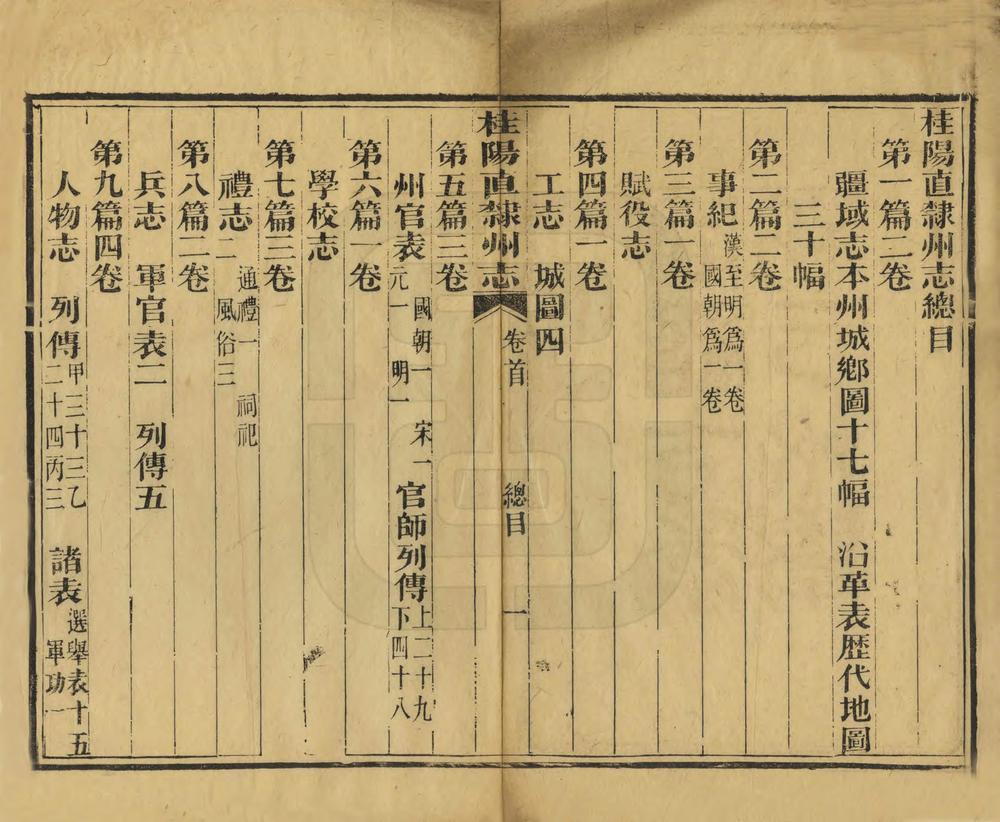 桂陽直隸州志總目
第一篇二卷
疆域志本州城鄉圖十七幅　沿革表歷代地圖
三十幅
第二篇二卷
事紀漢至明爲一卷
國朝爲一卷
第三篇一卷
賦役志
第四篇一卷
工志　城圖四
桂陽直隸州志　卷首　總目　一
第五篇三卷
州官表國朝一　宋一
元一　明一
官師列傳上二十九
下四十八
第六篇一卷
學校志
第七篇三卷
禮志二　通禮一　祠祀
風俗三
第八篇二卷
兵志　軍官表二　列傳五
第九篇四卷
人物志　列傳甲三十三乙
二十四丙三
諸表選舉表十五
軍功一